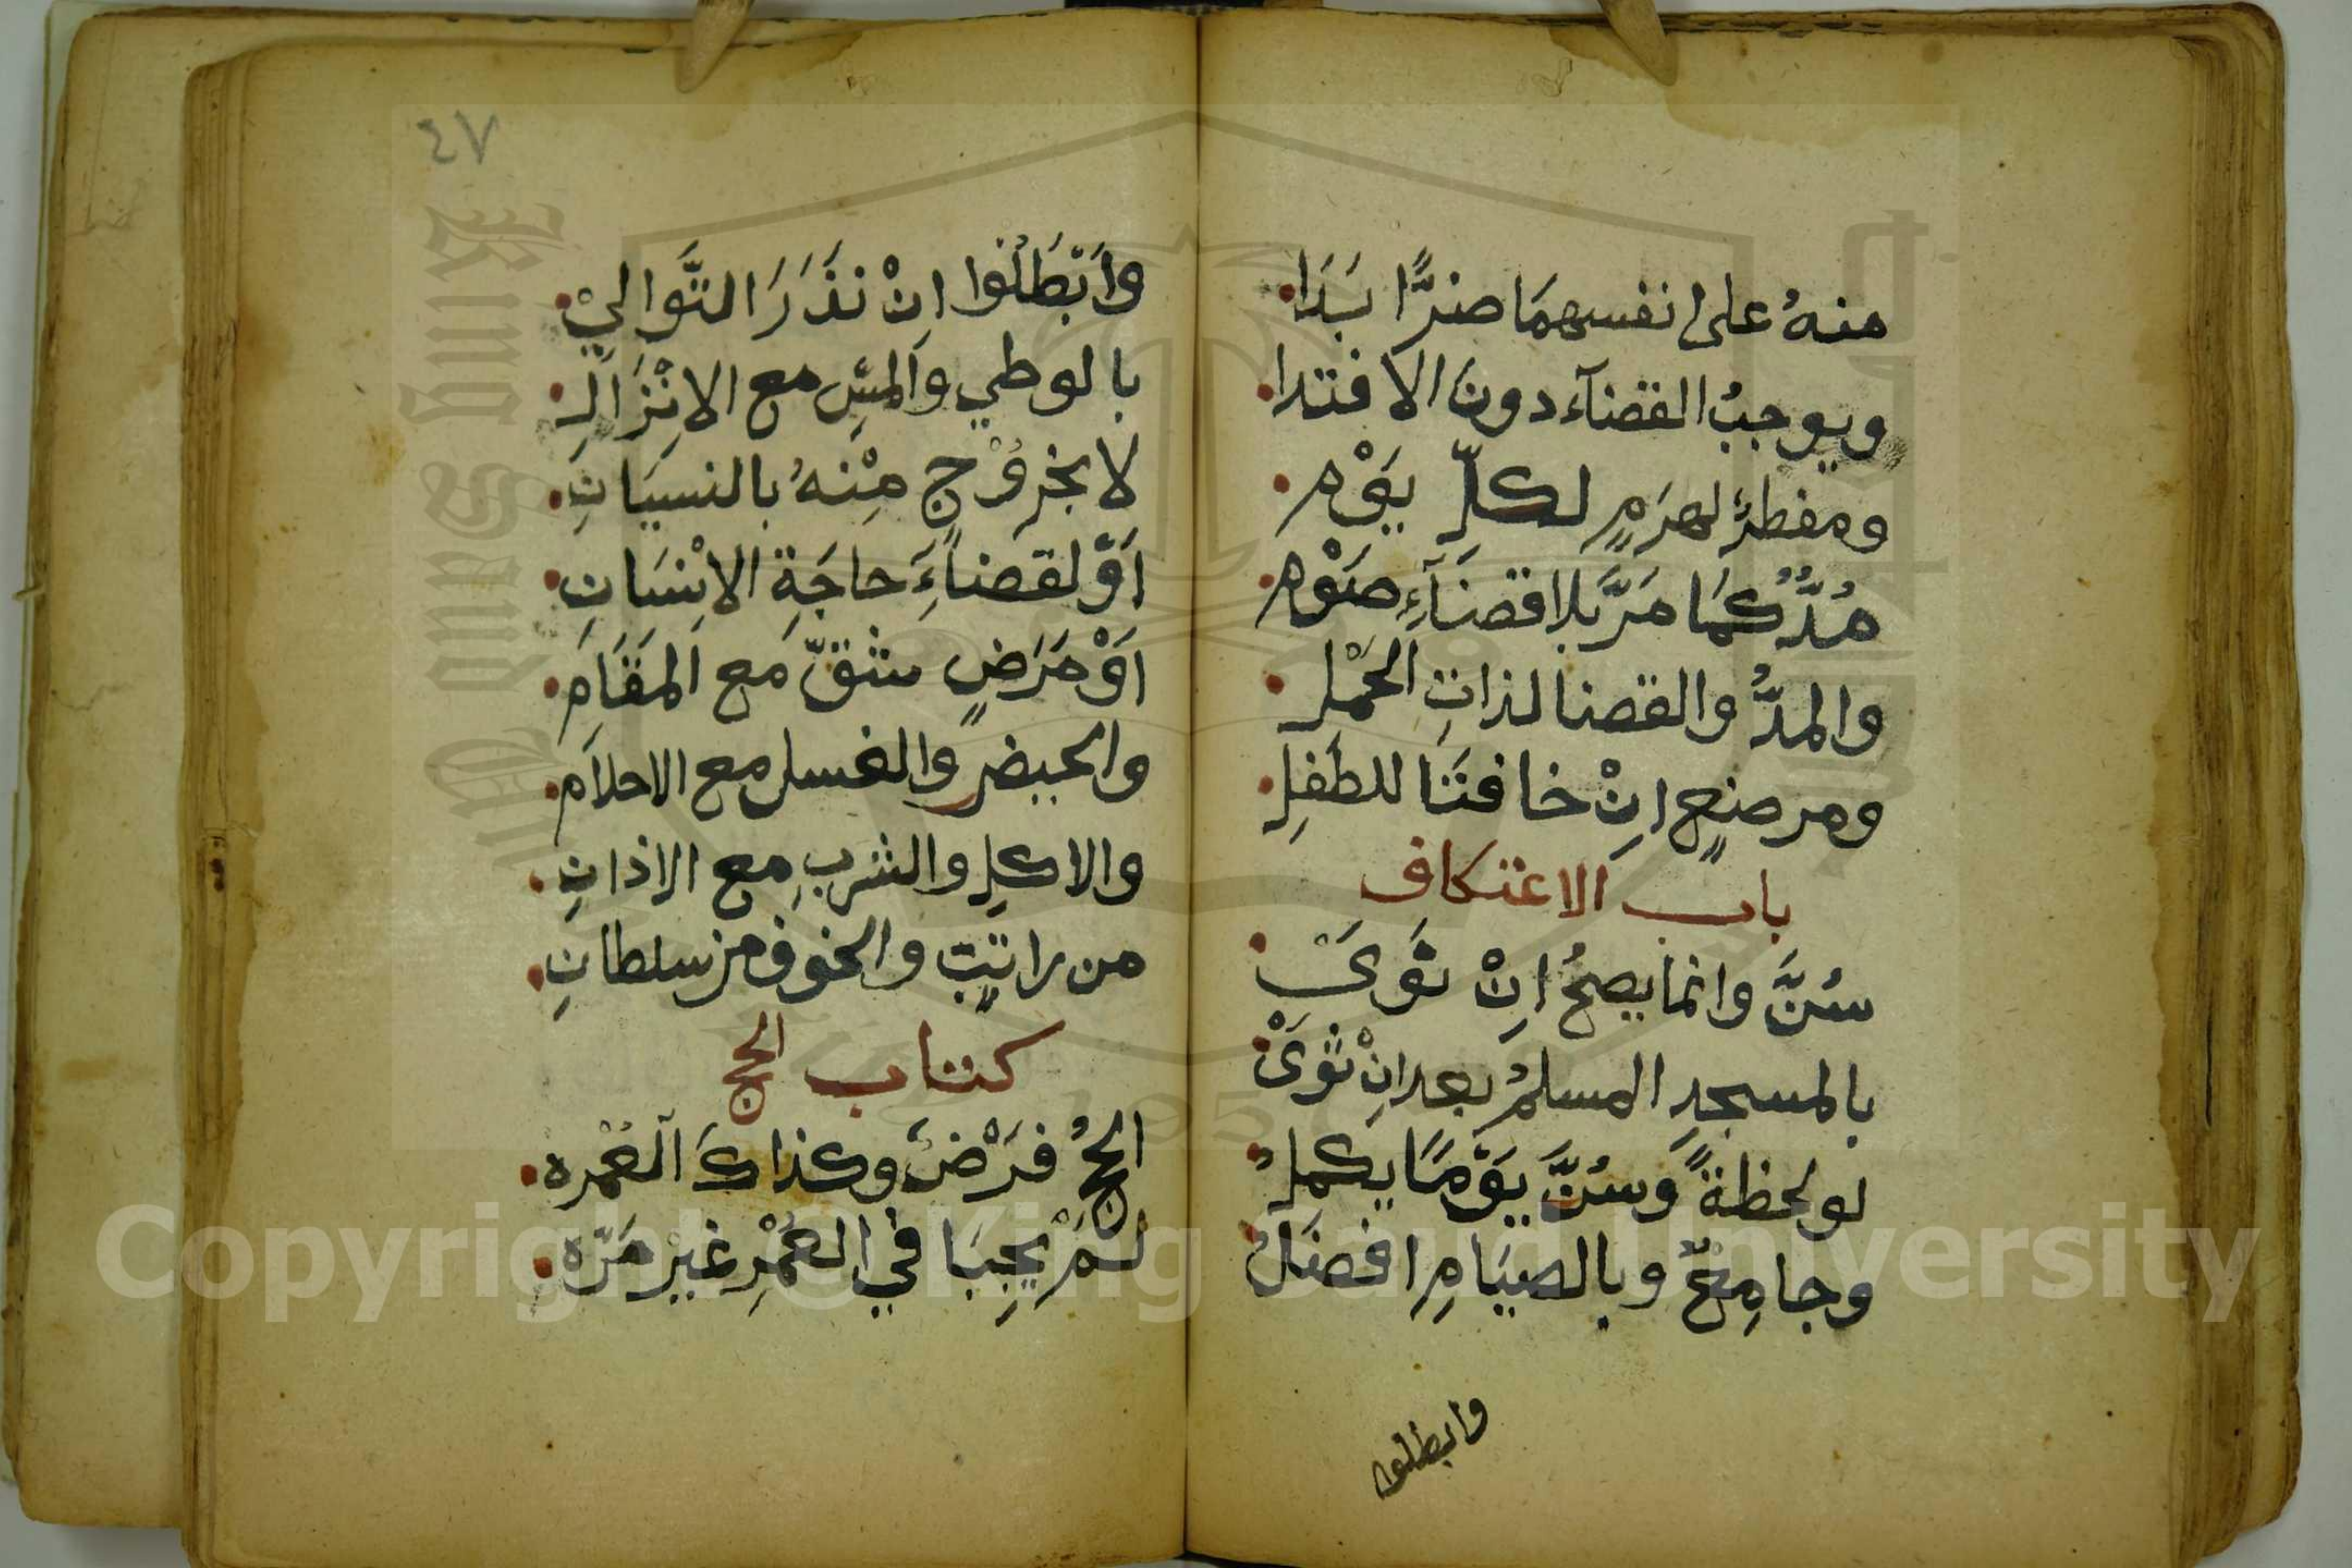 منهُ على انفسهمَا ضرًّا بَدَا
ويوجبُ القضآء دون الافتدا
ومفطرٌ لهرَمٍ لكلِّ يَوْمِ
مُدٌّ كمَا مَرَّ بلا قضَآءِ صَوْمِ
والمدُّ والقضا لذاتِ الحَمْلِ
ومرضعٍ اِنْ خافتَا للطفلِ
باب الاعتكاف
سُنَّ وانما يصحُ اِنْ نَوَىْ
بالمسجدِ المسلمُ بعد اِنْ ثَوَىْ
لو لحظةً وَسُنَّ يَوْمًا يكملُ
وجامِعٌ وبالصيَامِ افضلُ
وابطلوا
٤٧
وَابْطَلُوا اِنْ نَذَرَ التَّوَاليْ
بالوطي والمسِّ مع الاِنْزَالِ
لا بخرُوْجٍ مِنْهُ بالنسيَانِ
اَوْ لقضَاءِ حاجَةِ الاِنْسَانِ
اَوْ مَرَضٍ شقّ مَع المَقَامِ
والحيضِ والغسل مع الاحلَامِ
والاكلِ والشربِ مع الاذانِ
من راتبٍ والخوف من سلطانِ
كتاب الحج
الحجُ فَرْضٌ وكذاكَ العُمْره
لَمْ يجِبَا في العُمْرِ غيْر مَرّه
Copyright © King Saud University